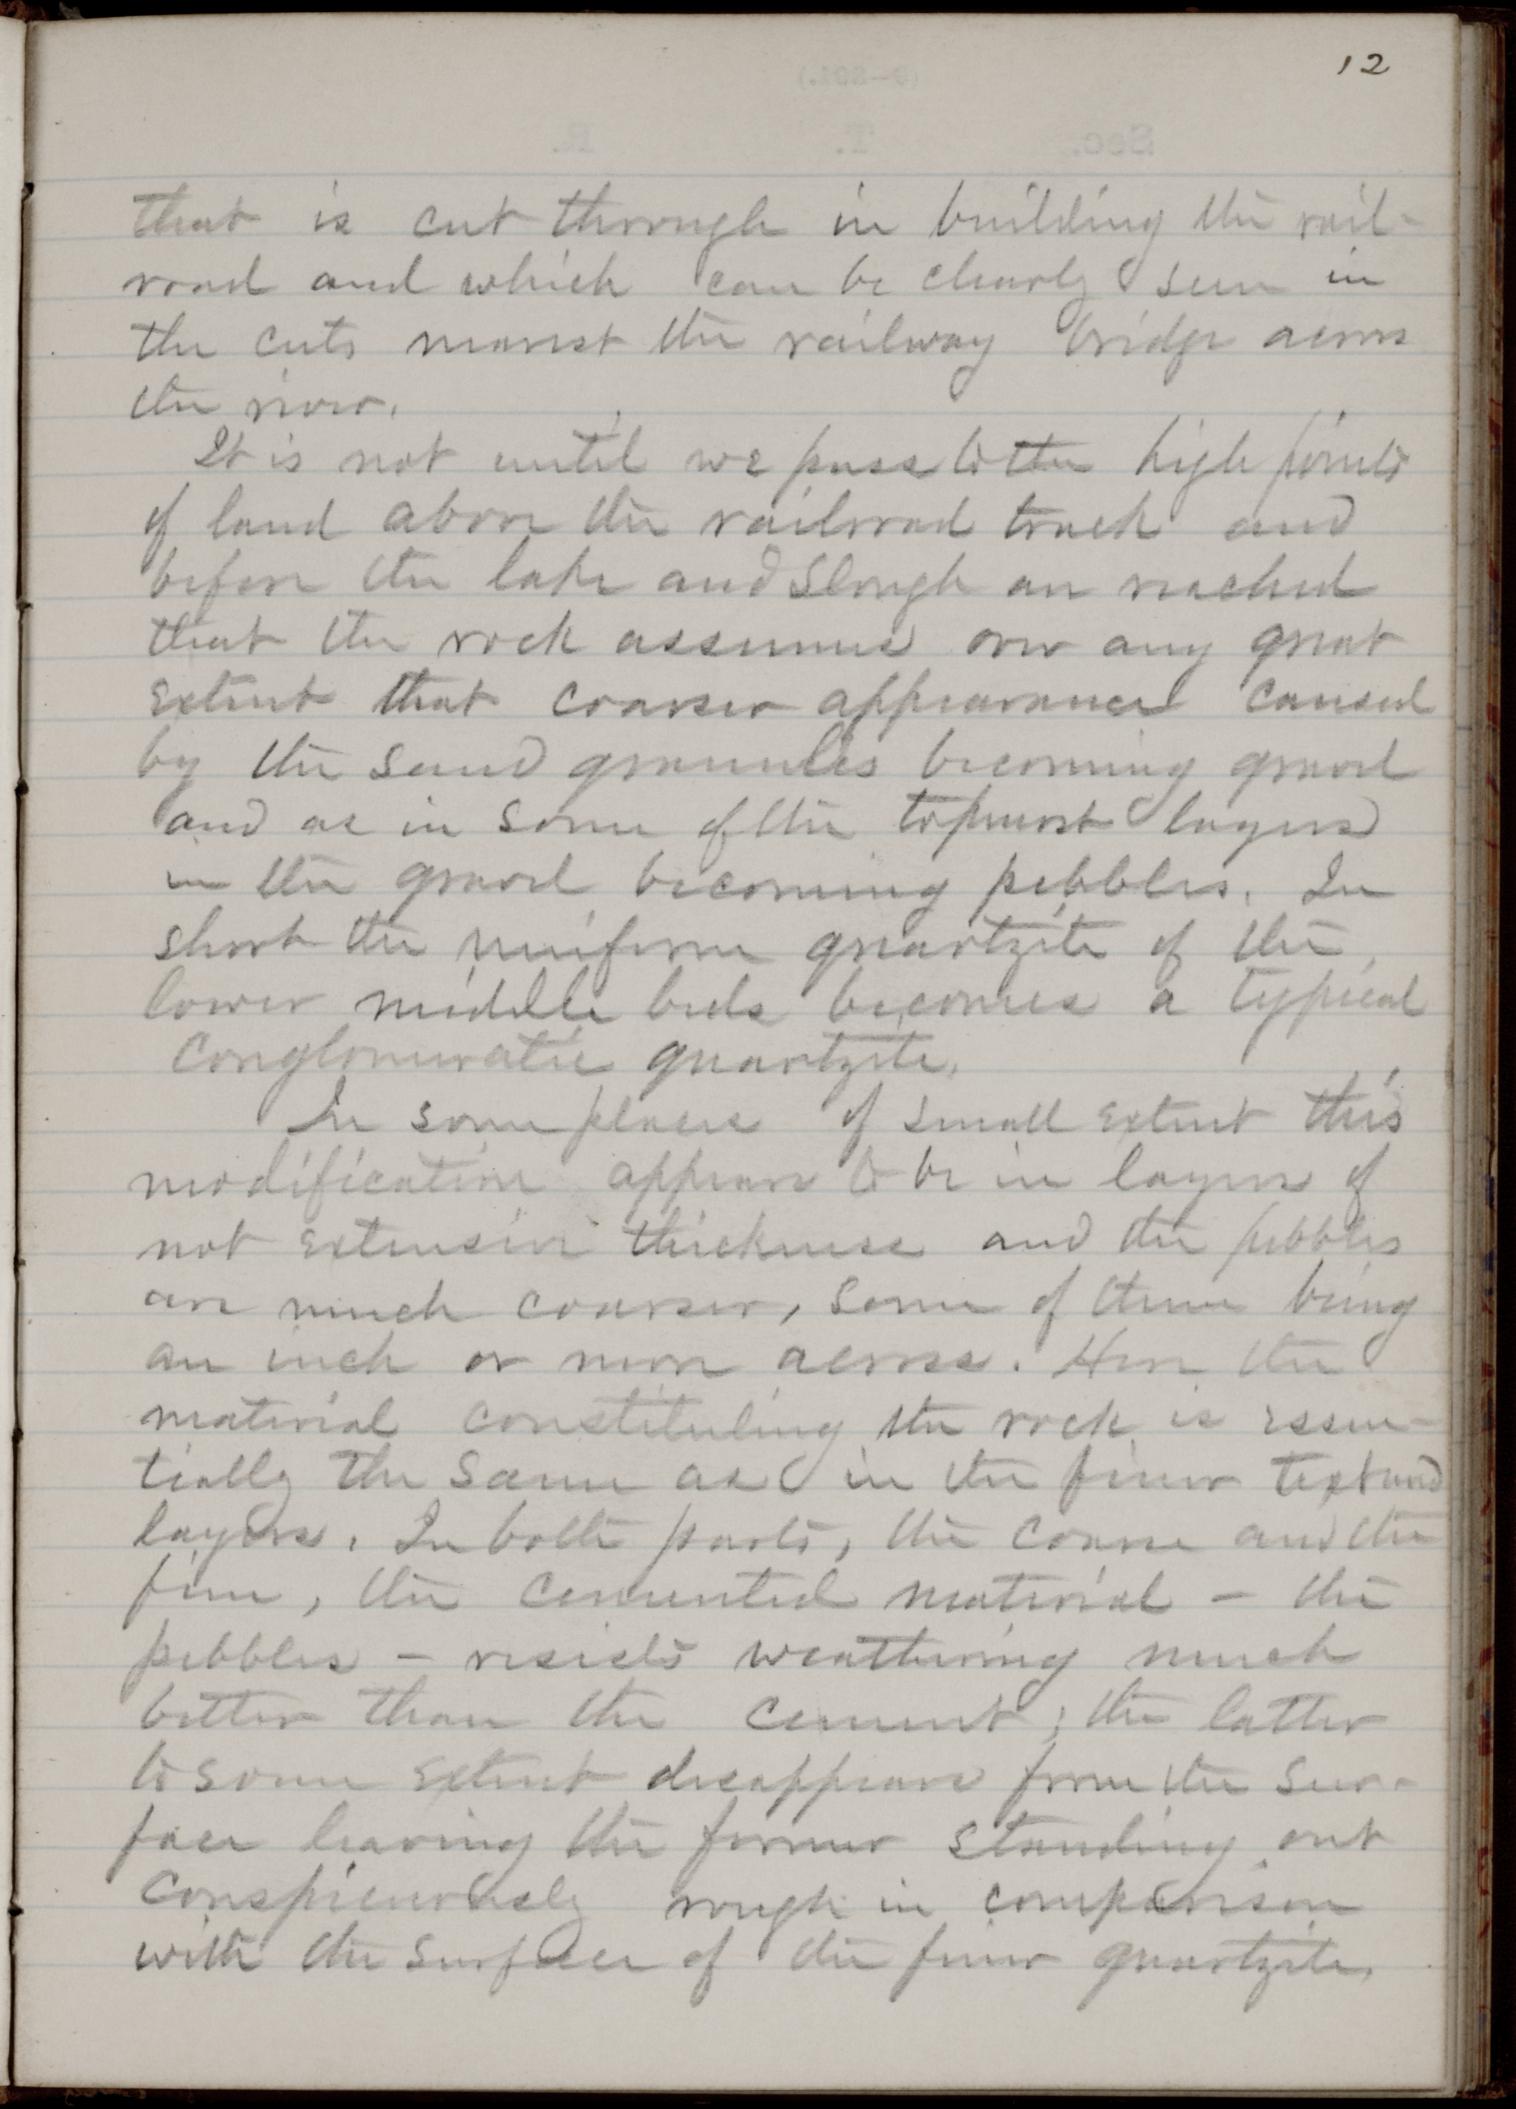 12
that is cut through in building the rail-
road and which can be clearly seen in
the cuts nearest the railway bridge across
the river.
It is not until we pass to the high points
of land above the railroad track and
before the lake and slough are reached
that the rock assumes over any great
extent that coarser appearance caused
by the sand granules becoming gravel
and as in some of the topmost layers
in the gravel becoming pebbles. In
short the uniform quartzite of the
lower middle beds becomes a typical
conglomeratic quartzite.
In some places of small extent this
modification appears to be in layers of
not extensive thickness and the pebbles
are much coarser, some of them being
an inch or more across. Here the
material constituting the rock is essen-
tially the same as in the finer textured
layers. In both parts, the coarse and the
fine, the cemented material - the
pebbles - resists weathering much
better than the cement; the latter
to some extent disappears from the sur-
face leaving the former standing out
conspicuously rough in comparison
with the surface of the finer quartzite.